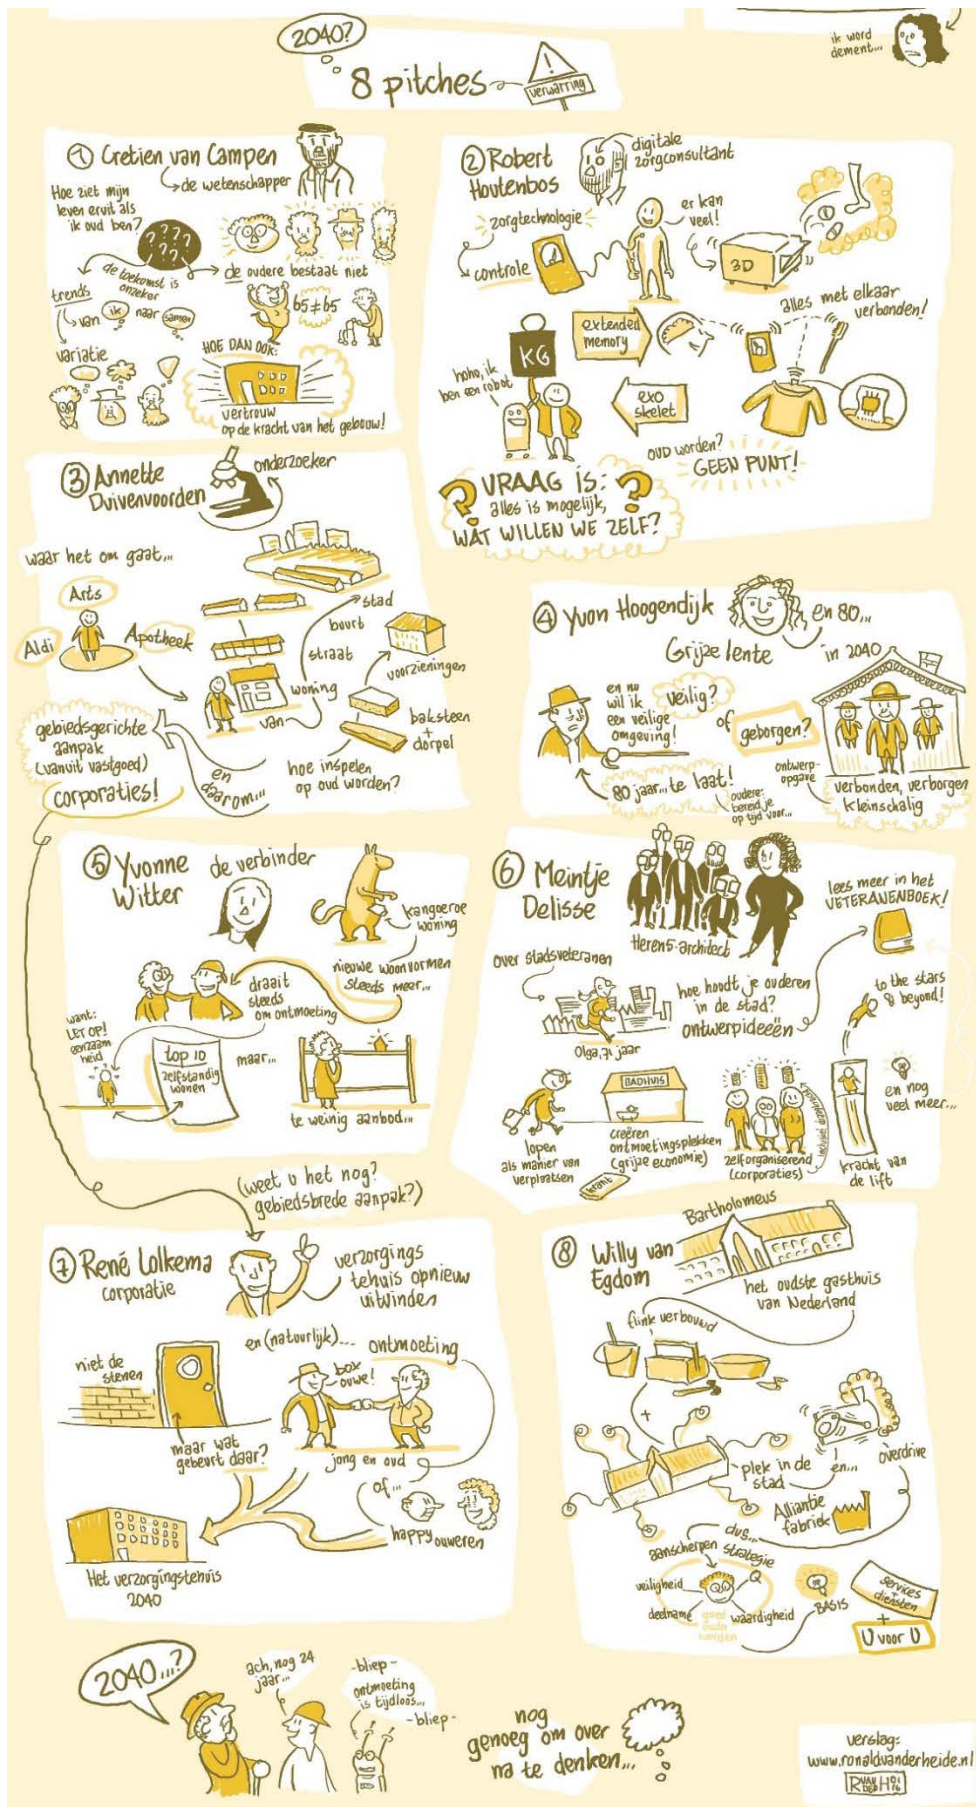 2040?
8 pitches
verwarring
ik word
dement...
1 Cretien van Campen
de wetenschapper
Hoe ziet mijn
leven eruit als
ik oud ben?
????
???
de toekomst is
onzeker
de oudere bestaat niet
65≠65
trends
van ik naar samen
variatie
HOE DAN OOK:
vertrouw
op de kracht van het gebouw!
2 Robert
Houtenbos
digitale
zorgconsultant
zorgtechnologie
controle
er kan
veel!
3D
alles met elkaar
verbonden!
extended
memory
KG
hoho, ik
ben een robot
exo
skelet
OUD worden?
GEEN PUNT!
? VRAAG IS: ?
alles is mogelijk,
WAT WILLEN WE ZELF?
3 Annette
Duivenvoorden
onderzoeker
waar het om gaat...
Arts
Aldi
Apotheek
stad
buurt
straat
woning
van
voorzieningen
baksteen
+
dorpel
hoe inspelen
op oud worden?
en
daarom...
gebiedsgerichte
aanpak
(vanuit vastgoed)
corporaties!
4 Yvon Hoogendijk
en 80...
Grijze lente
in 2040
en nu
wil ik
een veilige
omgeving!
veilig?
of
geborgen?
80 jaar... te laat!
oudere:
bereid je
op tijd voor...
ontwerp-
opgave
verbonden, verborgen
kleinschalig
5 Yvonne
Witter
de verbinder
kangoeroe
woning
nieuwe woonvormen
steeds meer...
draait
steeds
om ontmoeting
want:
LET OP!
eenzaam
heid
top 10
zelfstandig
wonen
maar...
te weinig aanbod...
6 Meintje
Delisse
Heren5-architect
lees meer in het
VETERANENBOEK!
over stadsveteranen
Olga, 71 jaar
hoe houdt je ouderen
in de stad?
ontwerpideeën
to the stars
& beyond!
en nog
veel meer...
lopen
als manier van
verplaatsen
BADHUIS
creëren
ontmoetingsplekken
(grijze economie)
krant
zelforganiserend
(corporaties)
kracht van
de lift
(weet u het nog?
gebiedsbrede aanpak?)
7 René Lolkema
corporatie
verzorgings
tehuis opnieuw
uitvinden
niet de
stenen
maar wat
gebeurt daar?
en (natuurlijk)... ontmoeting
box
ouwe!
jong en oud
of...
happy ouweren
Het verzorgingstehuis
2040
8 Willy van
Egdom
Bartholomeus
het oudste gasthuis
van Nederland
flink verbouwd
+
plek in de
stad
en...
overdrive
Alliantie
fabriek
dus...
aanscherpen strategie
veiligheid
deelname
waardigheid
goed
ouder
worden
BASIS
services
+
diensten
+
U voor U
2040...?
ach, nog 24
jaar...
-bliep-
ontmoeting
is tijdloos...
-bliep-
nog
genoeg om over
na te denken...
verslag:
www.ronaldvanderheide.nl